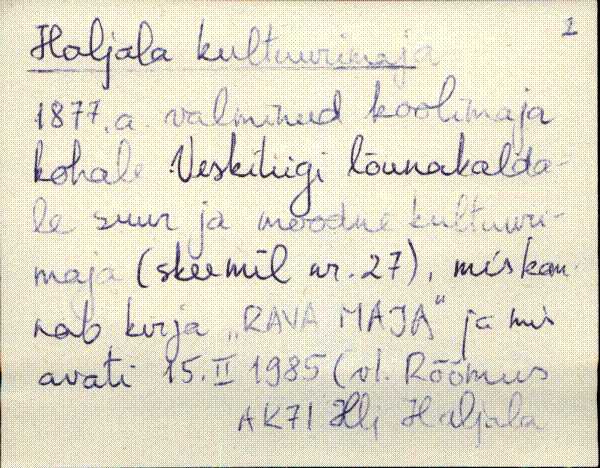 2
Haljala kultuurimaja
1877.a. valminud koolimaja
kohale Veskitiigi lõunakalda-
le suur ja moodne kultuuri-
maja (skeemil nr. 27), mis kan-
nab kirja „RAVA MAJA" ja mis
avati 15.II 1985 (vl. Rõõmus
AK71 Hlj Haljala